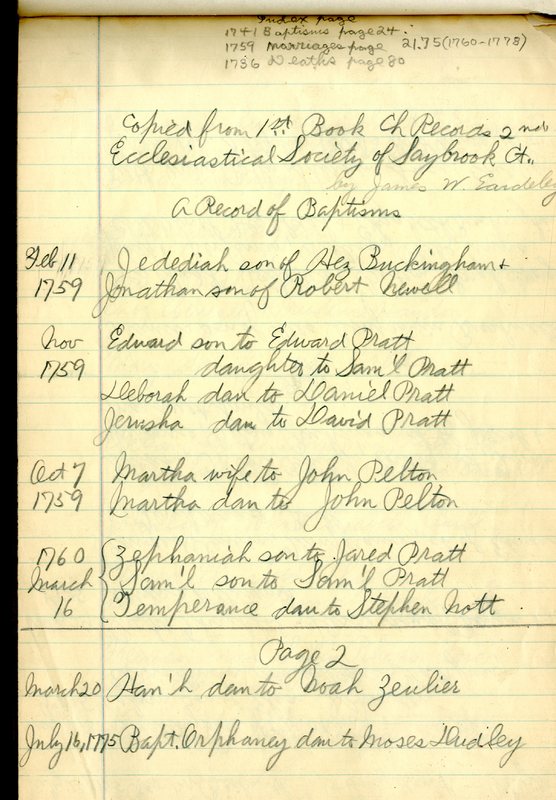 Index page
1741 Baptisms page 24.
1759 marriages page 21.75 (1760-1778)
1736 Deaths page 80
Copied from 1st Book Ch Records 2nd
Ecclesiastical Society of Saybrook Ct.,
by James W. Eardeley
A Record of Baptisms
Feb 11 Jedediah son of Hez Buckingham +
1759 Jonathan son of Robert Newell
Nov Edward son to Edward Pratt
1759 daughter to Sam'l Pratt
Deborah dau to Daniel Pratt
Jerusha dau to David Pratt
Oct 7 Martha wife to John Pelton
1759 Martha dau to John Pelton
1760 Zephaniah son to Jared Pratt
March Sam'l son to Sam'l Pratt
16 Temperance dau to Stephen Nott
Page 2
March 20 Han'h dau to Noah Zeulier
July 16, 1775 Bapt. Orphaney dau to Moses Dudley